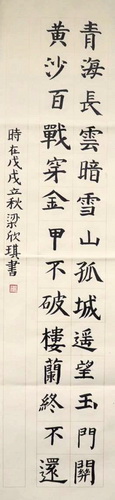 青海長雲暗雪山孤城遥望玉門關
黄沙百戰穿金甲不破樓蘭終不還
時在戊戌立秋梁欣琪書